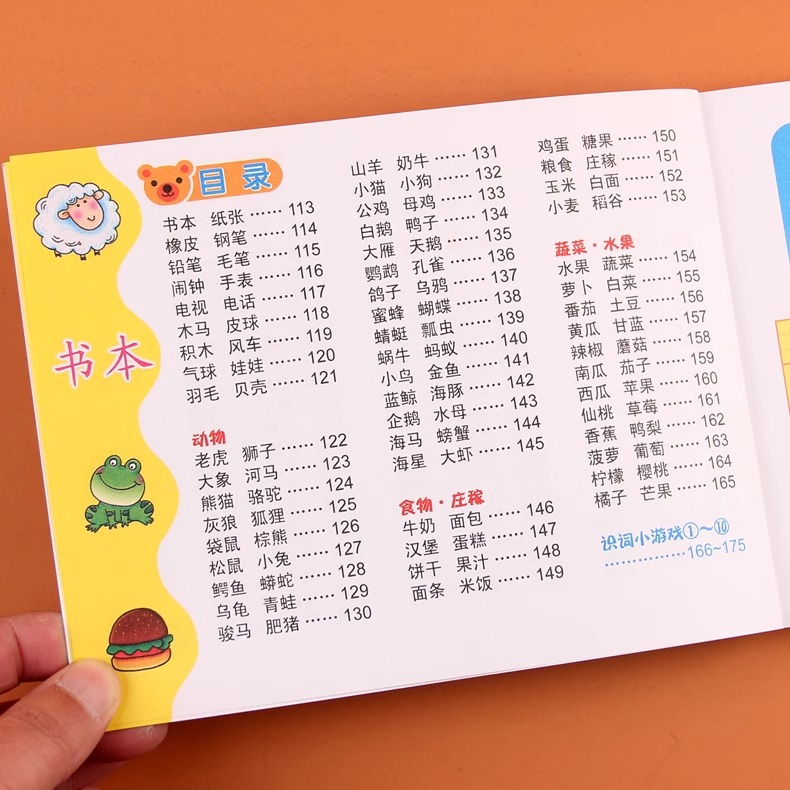 书本
目录
书本 纸张……113
橡皮 钢笔……114
铅笔 毛笔……115
闹钟 手表……116
电视 电话……117
木马 皮球……118
积木 风车……119
气球 娃娃……120
羽毛 贝壳……121
动物
老虎 狮子……122
大象 河马……123
熊猫 骆驼……124
灰狼 狐狸……125
袋鼠 棕熊……126
松鼠 小兔……127
鳄鱼 蟒蛇……128
乌龟 青蛙……129
骏马 肥猪……130
山羊 奶牛……131
小猫 小狗……132
公鸡 母鸡……133
白鹅 鸭子……134
大雁 天鹅……135
鹦鹉 孔雀……136
鸽子 乌鸦……137
蜜蜂 蝴蝶……138
蜻蜓 瓢虫……139
蜗牛 蚂蚁……140
小鸟 金鱼……141
蓝鲸 海豚……142
企鹅 水母……143
海马 螃蟹……144
海星 大虾……145
食物·庄稼
牛奶 面包……146
汉堡 蛋糕……147
饼干 果汁……148
面条 米饭……149
鸡蛋 糖果……150
粮食 庄稼……151
玉米 白面……152
小麦 稻谷……153
蔬菜·水果
水果 蔬菜……154
萝卜 白菜……155
番茄 土豆……156
黄瓜 甘蓝……157
辣椒 蘑菇……158
南瓜 茄子……159
西瓜 苹果……160
仙桃 草莓……161
香蕉 鸭梨……162
菠萝 葡萄……163
柠檬 樱桃……164
橘子 芒果……165
识词小游戏①～⑩
……………166~175